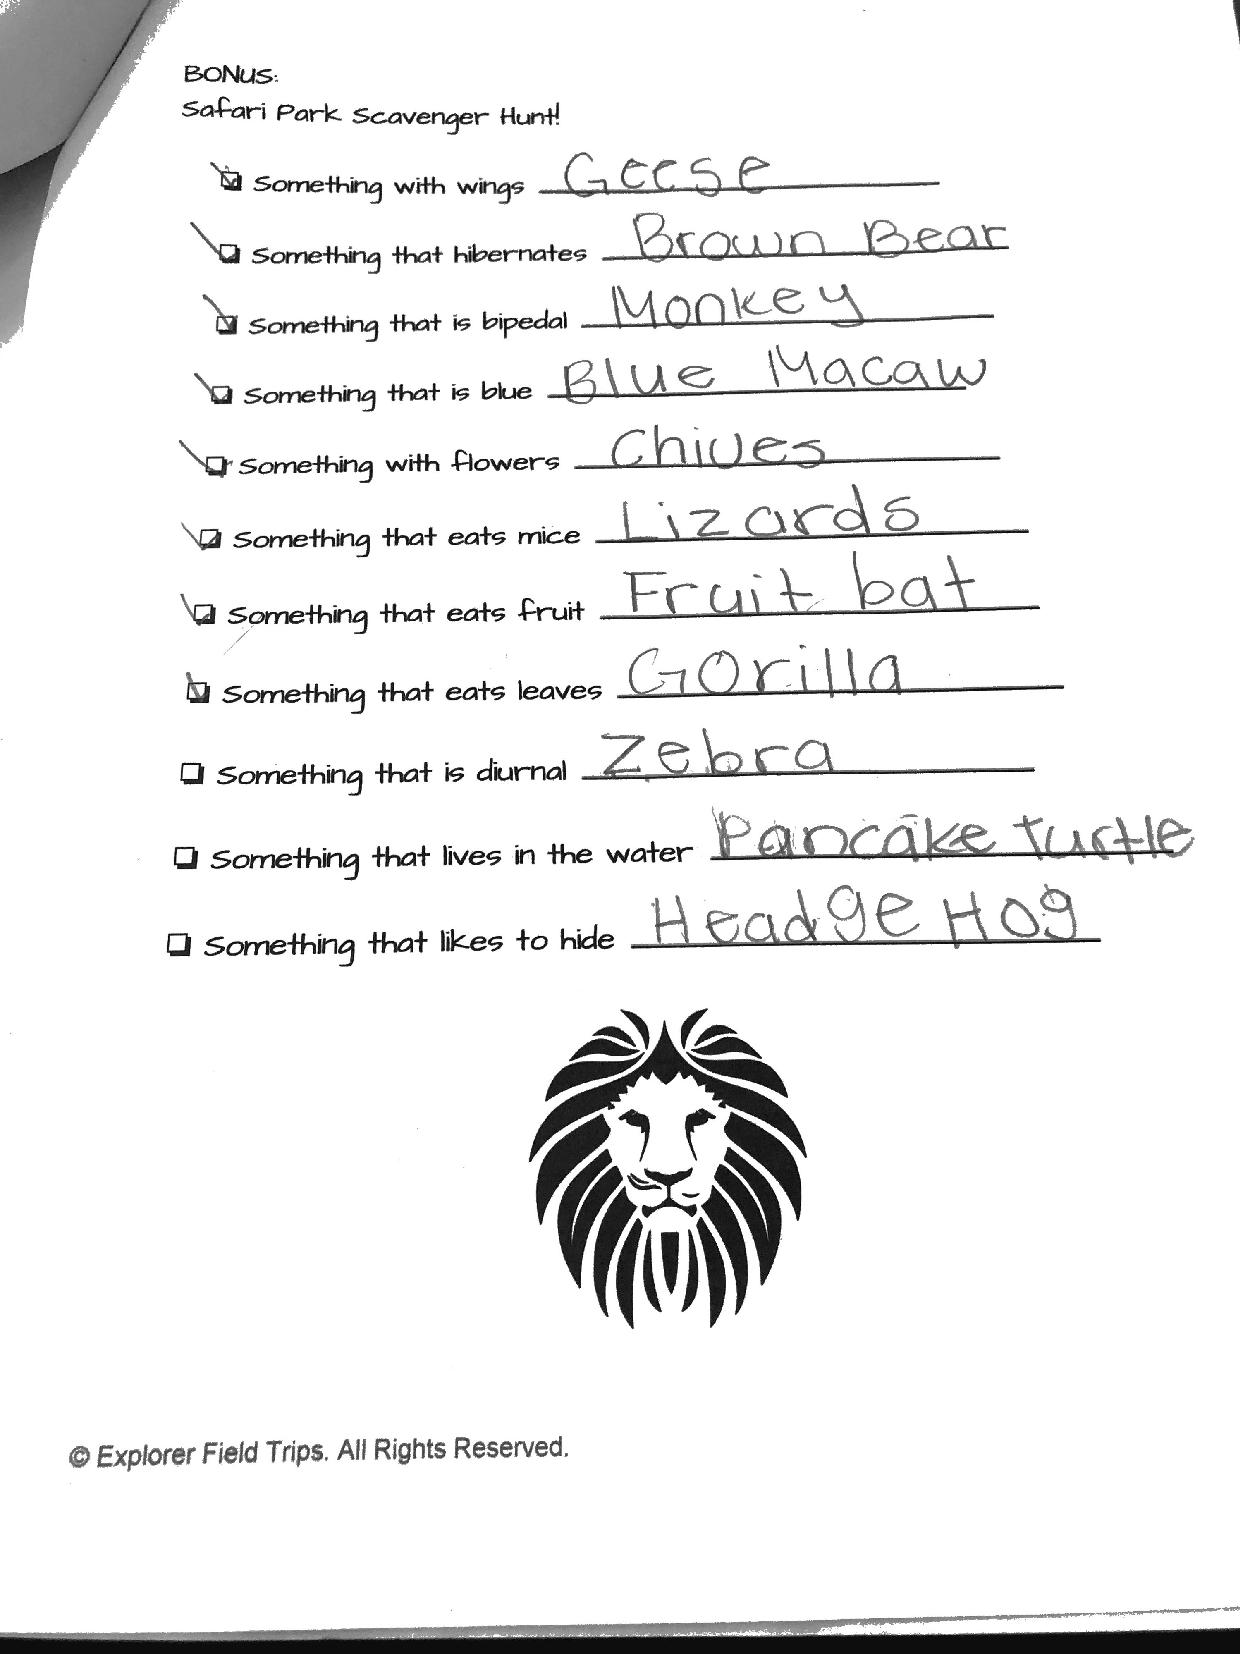 BONUS:
Safari Park Scavenger Hunt!
Something with wings Geese
Something that hibernates Brown Bear
Something that is bipedal Monkey
Something that is blue Blue Macaw
Something with flowers Chives
Something that eats mice Lizards
Something that eats fruit Fruit bat
Something that eats leaves Gorilla
Something that is diurnal Zebra
Something that lives in the water Pancake turtle
Something that likes to hide Headge Hog
© Explorer Field Trips. All Rights Reserved.